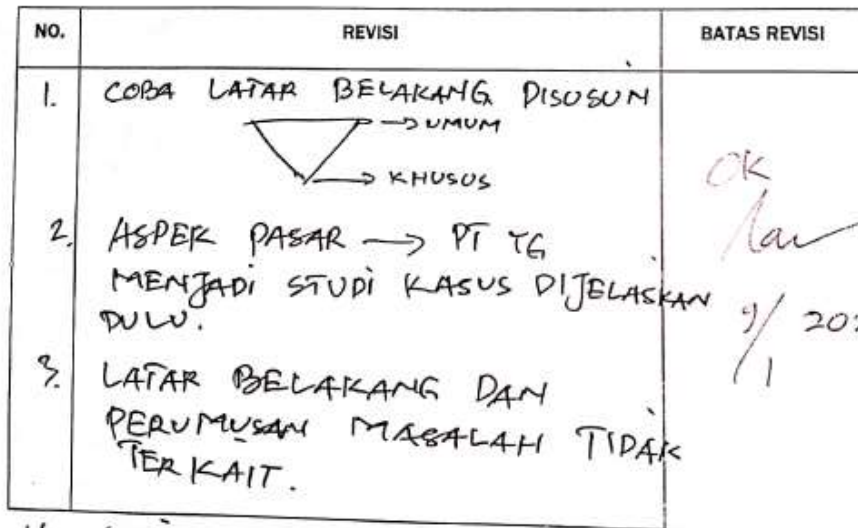 NO. REVISI BATAS REVISI
1. COBA LATAR BELAKANG DISUSUN
→ UMUM
→ KHUSUS
OK
2. ASPEK PASAR → PT TG
MENJADI STUDI KASUS DIJELASKAN
DULU.
9/1 202
3. LATAR BELAKANG DAN
PERUMUSAN MASALAH TIDAK
TERKAIT.